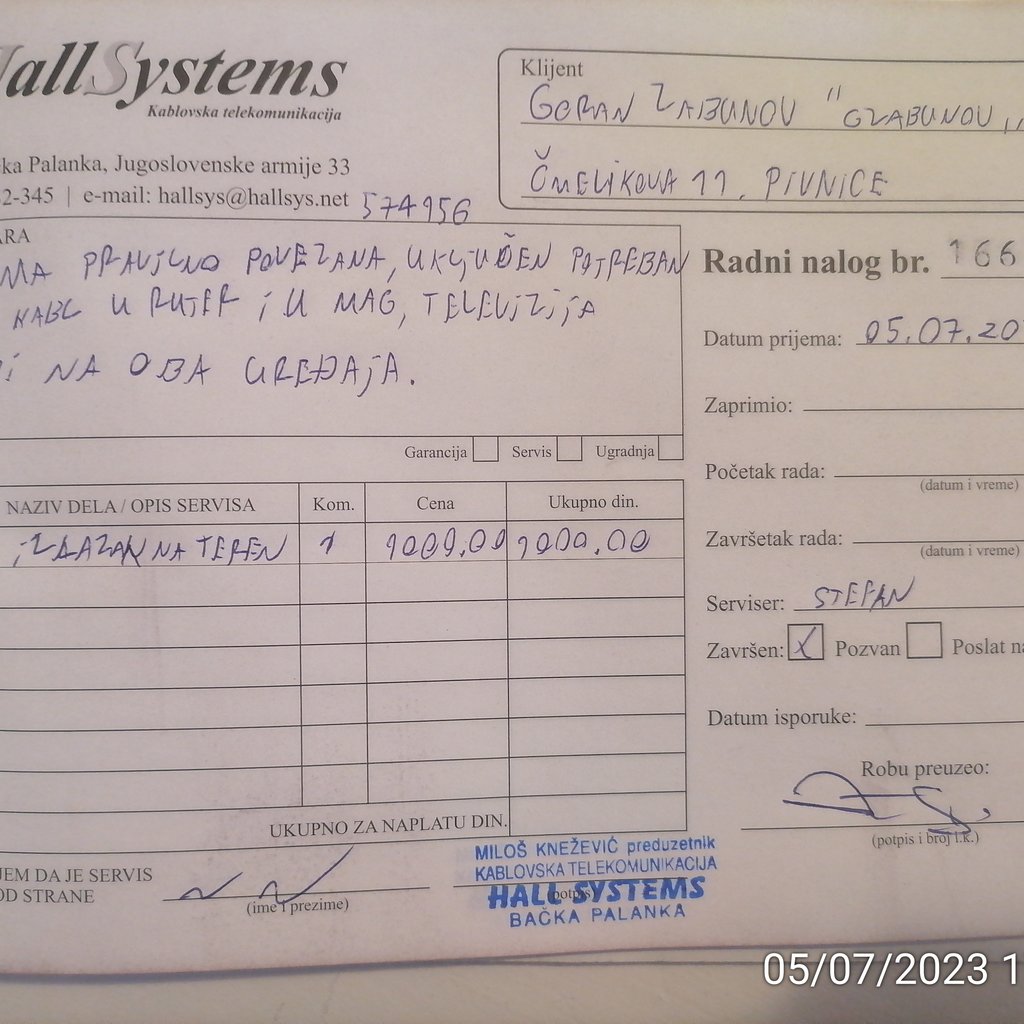 HallSystems
Kablovska telekomunikacija
ka Palanka, Jugoslovenske armije 33
2-345 | e-mail: hallsys@hallsys.net
574956
Klijent
GORAN ZABUNOV "GZABUNOV"
ČMELIKOVA 11, PIVNICE
ARA
MA PRAVILNO POVEZANA, UKLJUČEN POTREBAN
KABL U RUTER i U MAG, TELEVIZIJA
i NA OBA UREĐAJA.
Garancija Servis Ugradnja
Radni nalog br. 166
Datum prijema: 05.07.20
Zaprimio:
Početak rada:
(datum i vreme)
Završetak rada:
(datum i vreme)
Serviser: STEFAN
Završen: X Pozvan Poslat na
Datum isporuke:
Robu preuzeo:
(potpis i broj l.k.)
NAZIV DELA / OPIS SERVISA Kom. Cena Ukupno din.
IZLAZAK NA TEREN 1 1000,00 1000,00
UKUPNO ZA NAPLATU DIN.
JEM DA JE SERVIS
OD STRANE
(ime i prezime)
(potpis)
MILOŠ KNEŽEVIĆ preduzetnik
KABLOVSKA TELEKOMUNIKACIJA
HALL SYSTEMS
BAČKA PALANKA
05/07/2023 1